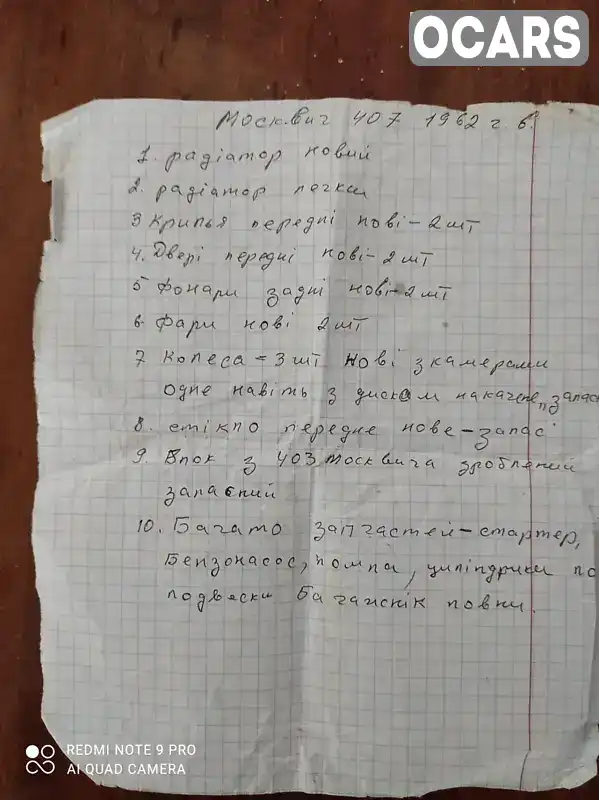 OCARS
Москвич 407 1962 г. в.
1. радіатор новий
2. радіатор печки
3 Крилья передні нові - 2 шт
4. Двері передні нові - 2 шт
5 Фонари задні нові - 2 шт
6 Фари нові 2 шт
7 Колеса = 3 шт нові з камерами
одне навіть з диском накачене, запас
8. стікло переднє нове - запас
9. Блок з 403 москвича зроблений
запасний
10. Багато запчастей - стартер,
Бензонасос, помпа, циліндрики по
подвески багажнік повни.
REDMI NOTE 9 PRO
AI QUAD CAMERA